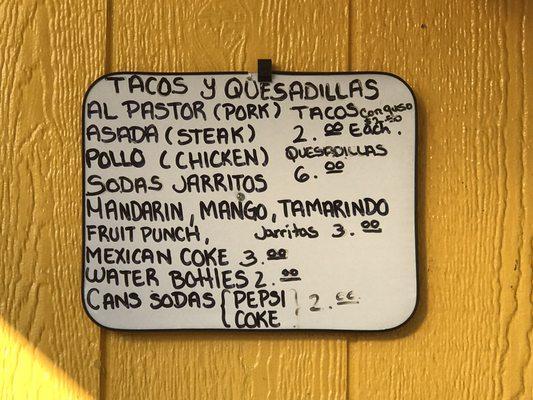 TACOS Y QUESADILLAS
AL PASTOR (PORK) TACOS con queso $2.50
ASADA (STEAK) 2.00 Each.
POLLO (CHICKEN) QUESADILLAS
6.00
SODAS JARRITOS
MANDARIN, MANGO, TAMARINDO
FRUIT PUNCH, Jarritos 3.00
MEXICAN COKE 3.00
WATER BOTTLES 2.00
CANS SODAS {PEPSI COKE} 2.00